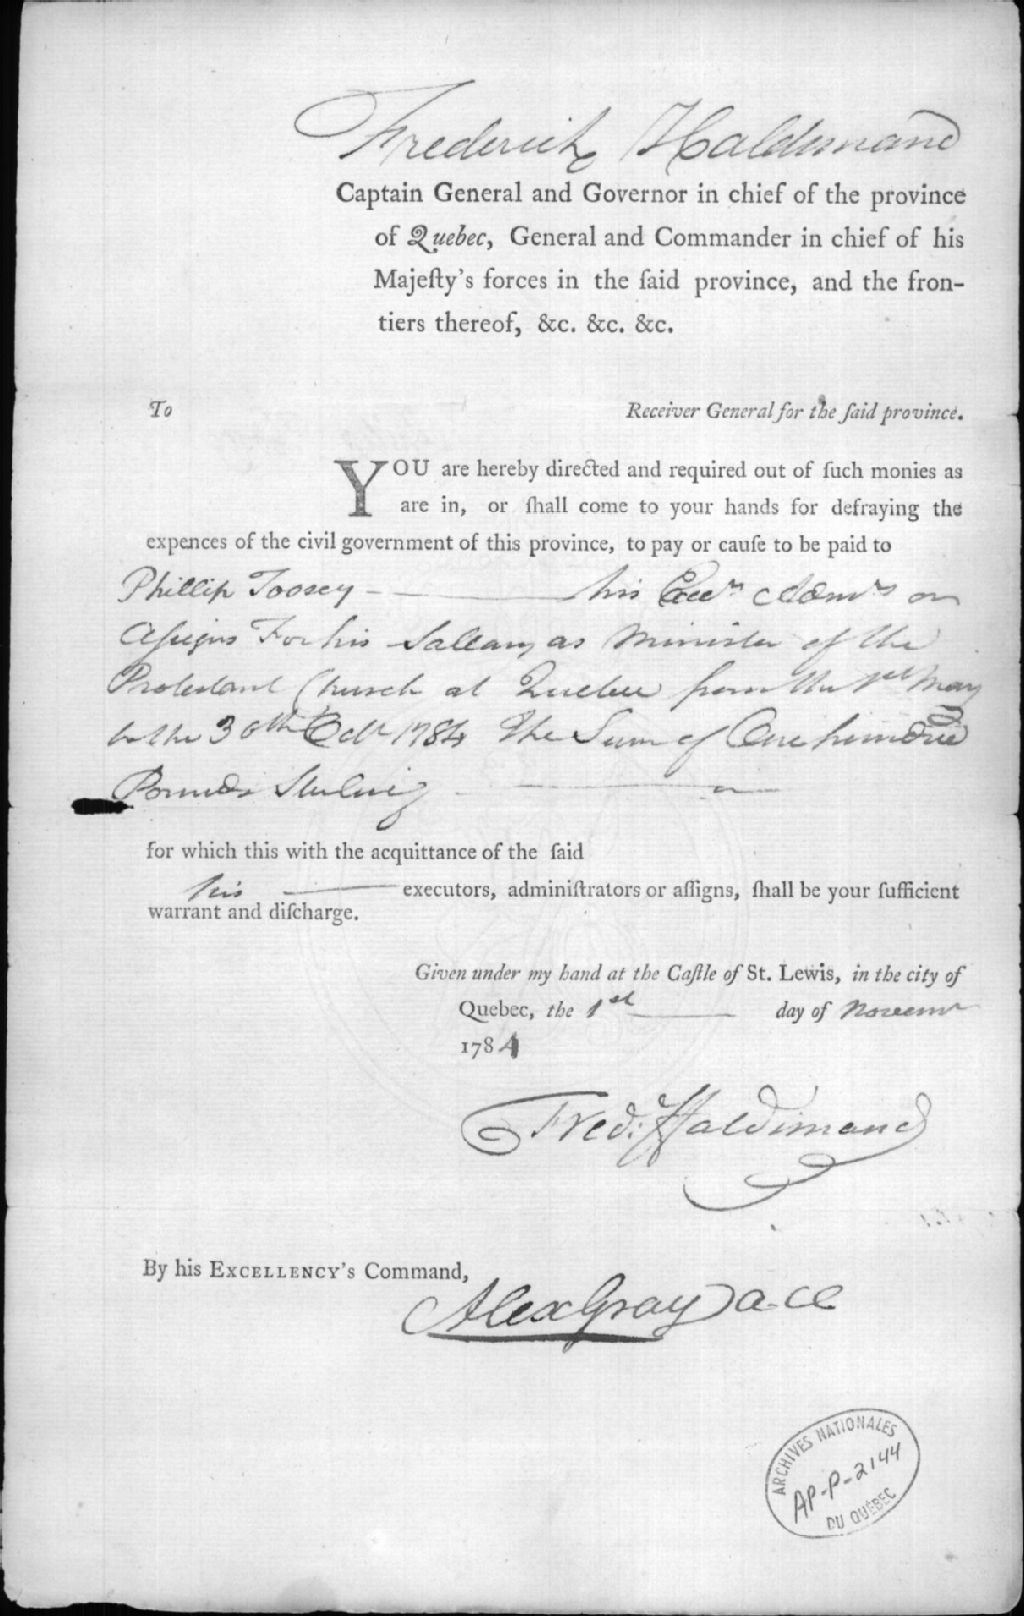 Frederick Haldimand
Captain General and Governor in chief of the province
of Quebec, General and Commander in chief of his
Majeſty's forces in the ſaid province, and the fron-
tiers thereof, &c. &c. &c.
To Receiver General for the ſaid province.
YOU are hereby directed and required out of ſuch monies as
are in, or ſhall come to your hands for defraying the
expences of the civil government of this province, to pay or cauſe to be paid to
Phillip Toosey his Exec.rs Adm.rs or
Aſsigns For his Sallary as Minister of the
Protestant Church at Quebec from the 1st May
to the 30th Octr 1784 The Sum of One hundred
Pounds Sterling
for which this with the acquittance of the ſaid
his executors, adminiſtrators or aſſigns, ſhall be your ſufficient
warrant and diſcharge.
Given under my hand at the Caſtle of St. Lewis, in the city of
Quebec, the 1st day of Novemr
1784
Fred: Haldimand
By his EXCELLENCY's Command,
Alex Gray
ARCHIVES NATIONALES
AP-P-2144
DU QUÉBEC